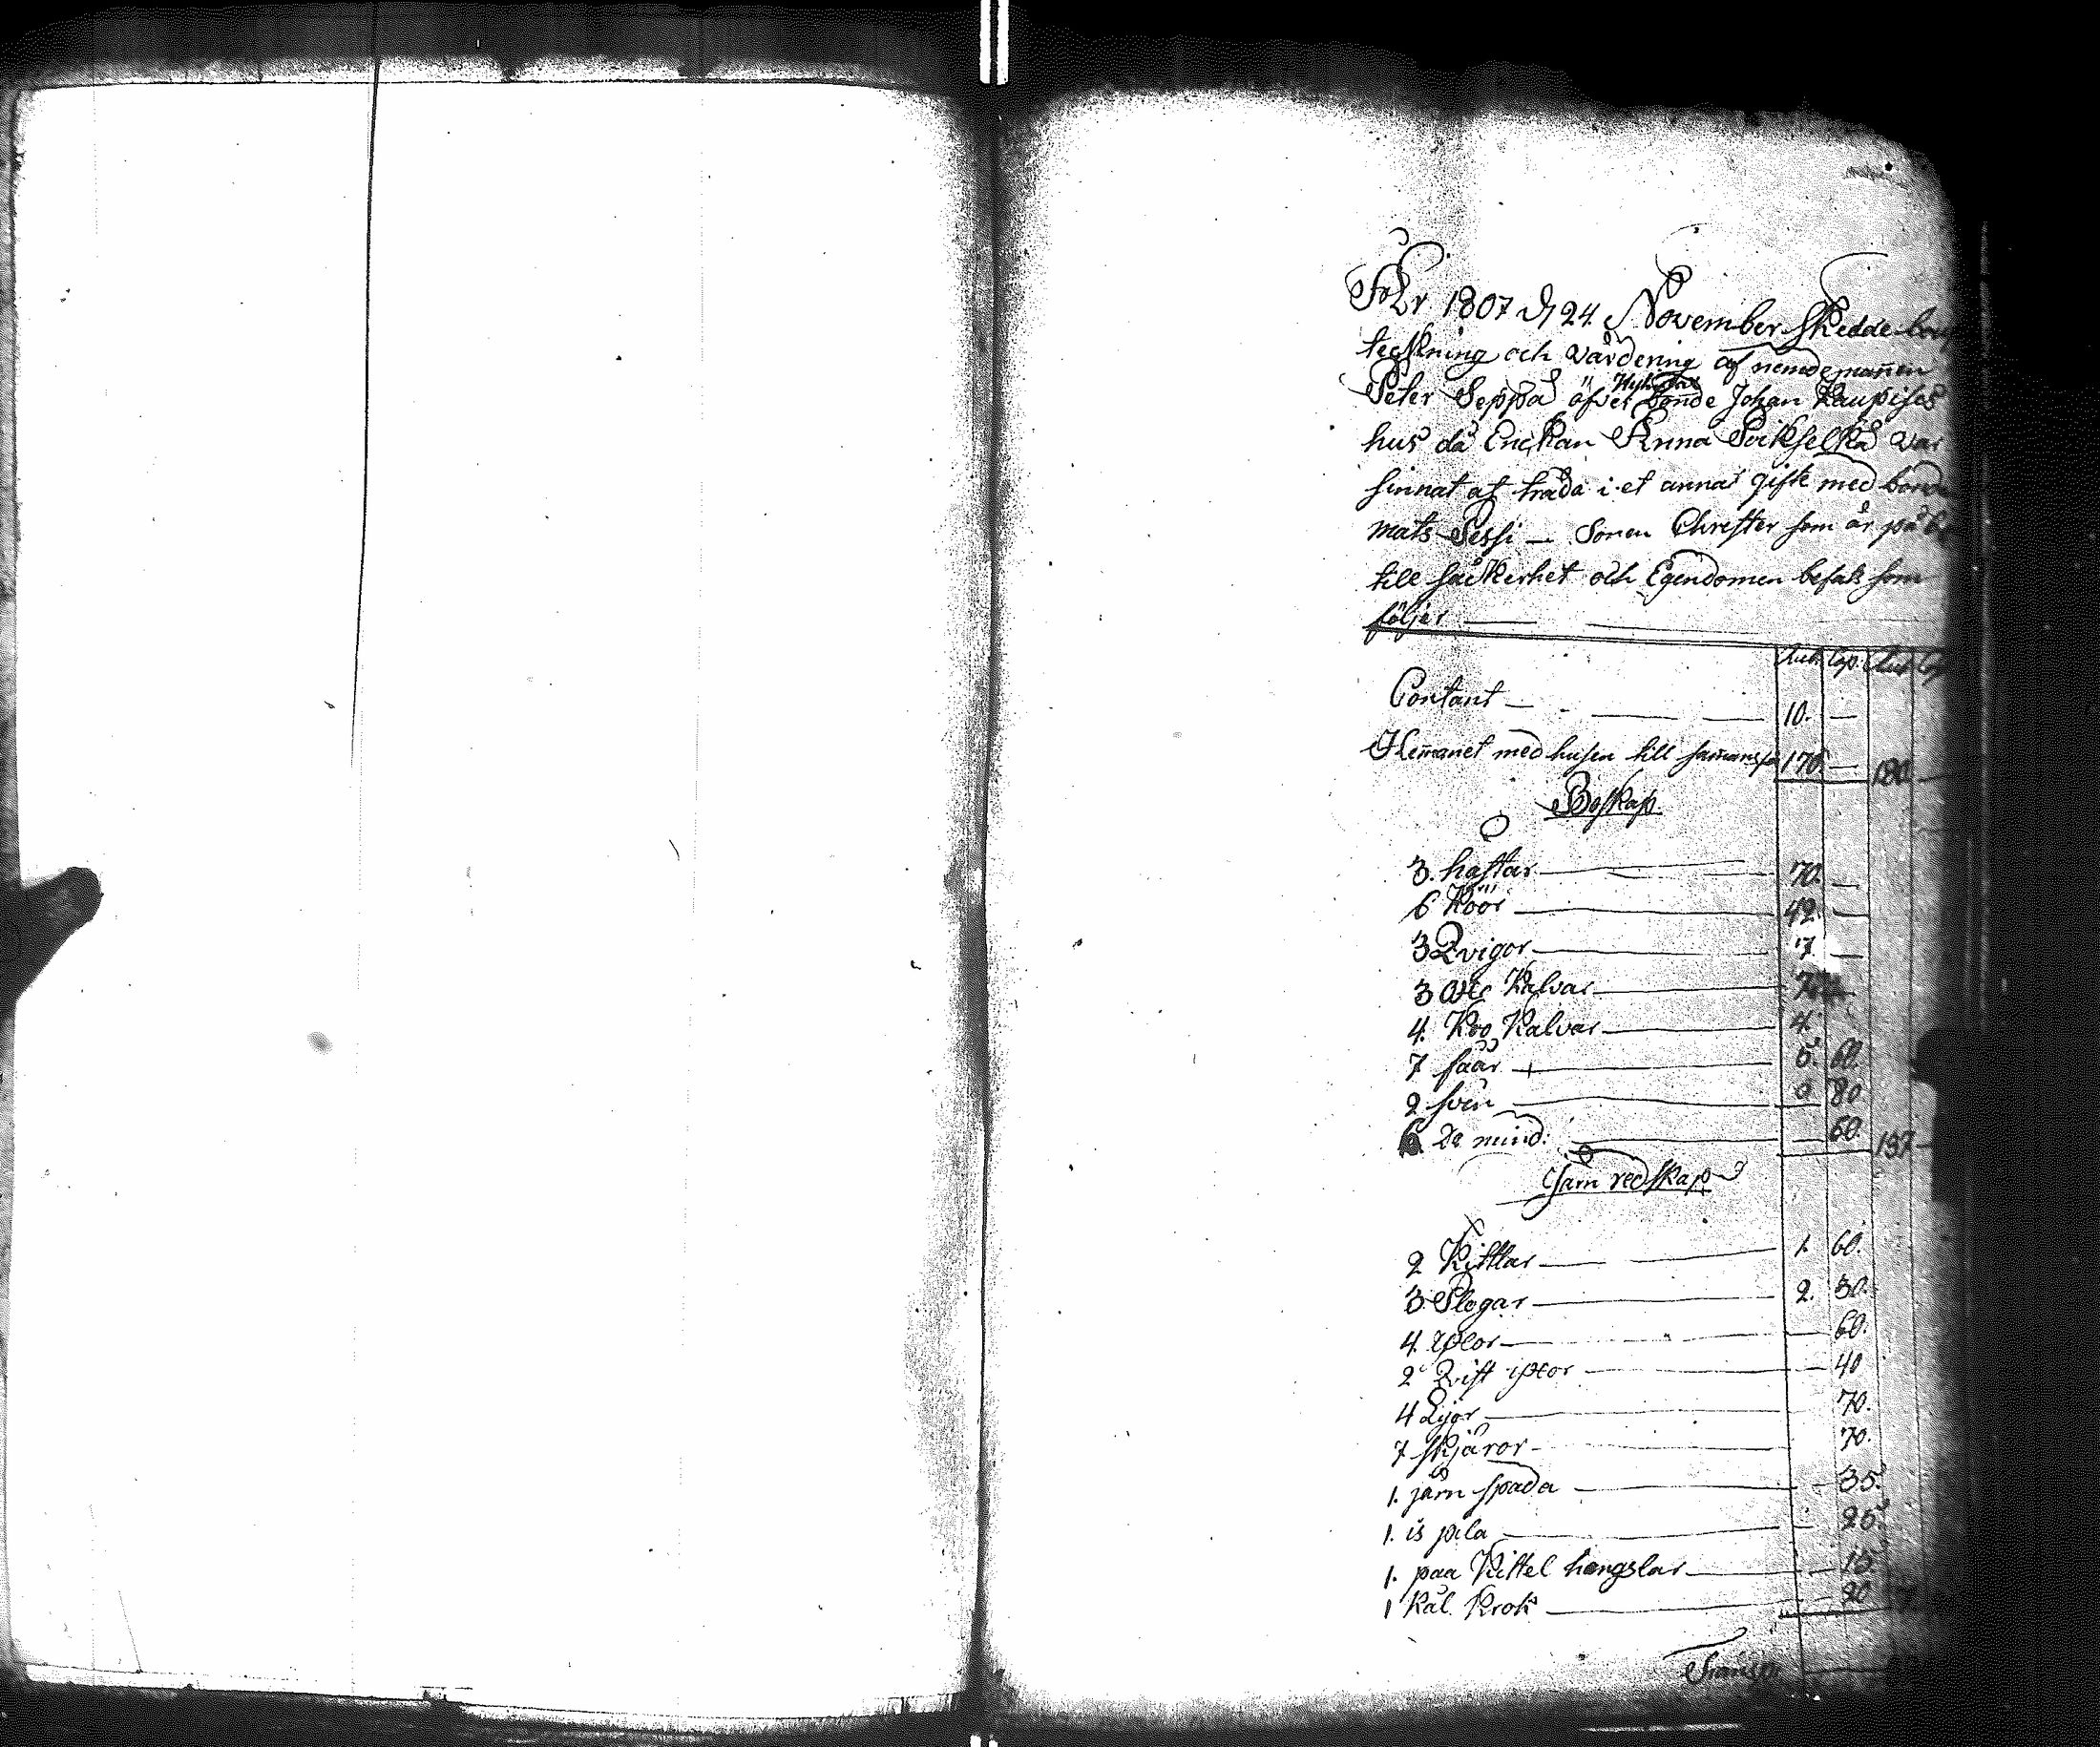 År 1807 d 24 November skedde
teckning och värdering af nemdemannen
Peter Seppä öfver bonde Johan Kaupises
hus då Enckan Anna Poikselkä var
sinnat at träda i et annat gifte med bonde
mats Sessi — Sonen Christer som är på
till säkerhet och Egendomen befats som
följer
Rub. Cop. Rub Cop
Contant — 10. —
Hemanet med husen till samans för 170 — 180 —
Boskap
3. hästar — 70. —
6 Köör — 42 —
3 Qvigor — 7 —
3 Kalvar — 7
4. Koo Kalvar — 4.
7 fäår — 5. 60.
2 svin — 0 80
6 De mind: — 60. 137 —
Järn redskap
2 Kittlar — 1. 60.
3 Plogar — 2. 30.
4. yxor — 60.
2 Qvist yxor — 40
4 Lijor — 70.
7 skjäror — 70.
1. järn spada — 35.
1. is pila — 25.
1. paa Kittel hängslar — 15
1 Kål Krok — 20 7
Transp